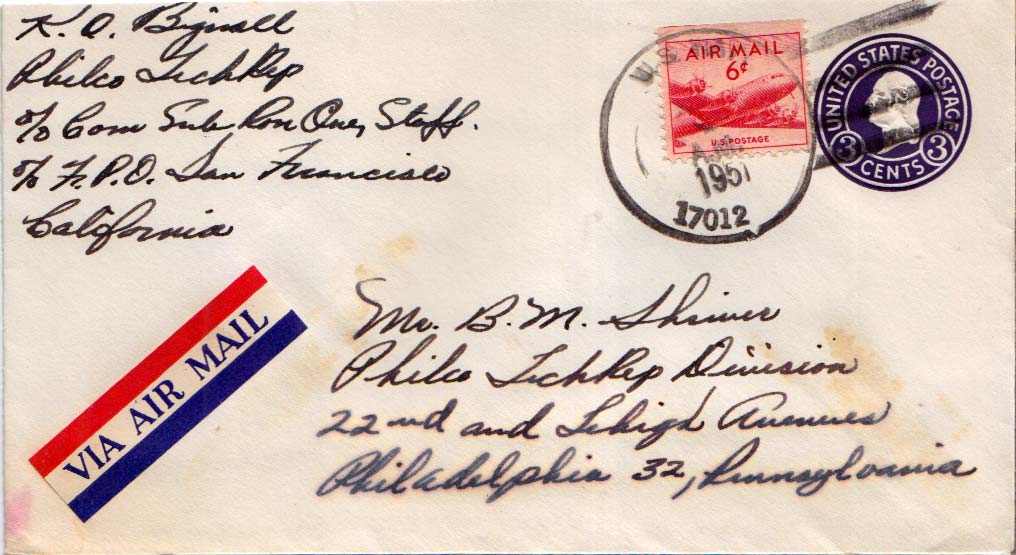 K. O. Bignell
Philco TechRep
c/o Com Sub Ron One, Staff.
c/o F.P.O. San Francisco
California
U.S.
AIR MAIL
6¢
U.S. POSTAGE
A.M.
1951
17012
UNITED STATES POSTAGE
3 CENTS 3
VIA AIR MAIL
Mr. B. M. Shriver
Philco TechRep Division
22nd and Lehigh Avenues
Philadelphia 32, Pennsylvania